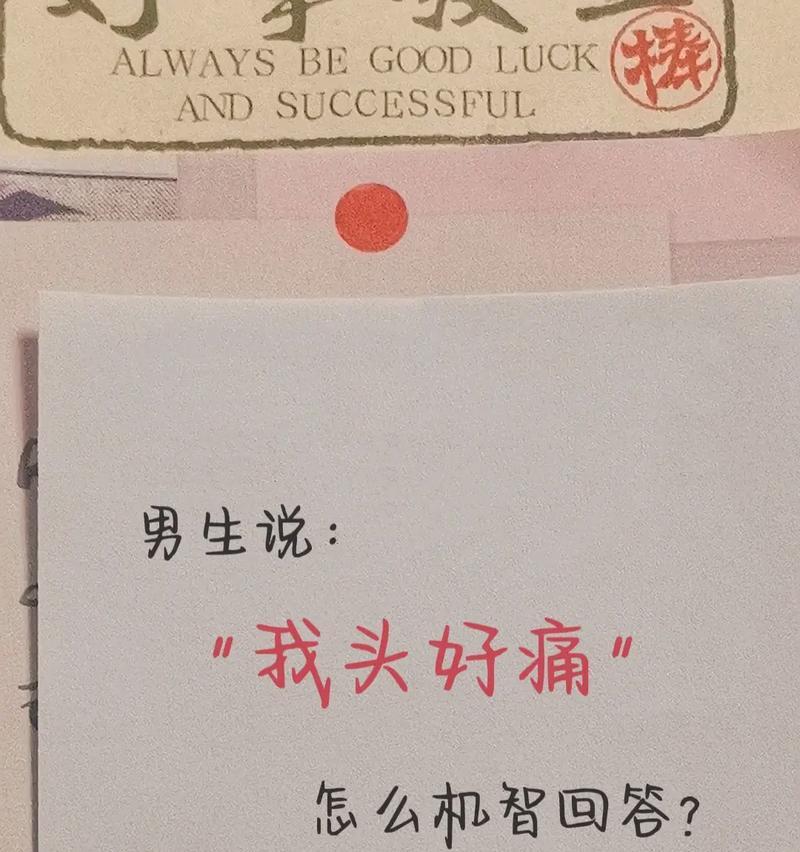 ALWAYS BE GOOD LUCK
棒
AND SUCCESSFUL
男生说：
"我头好痛"
怎么机智回答？